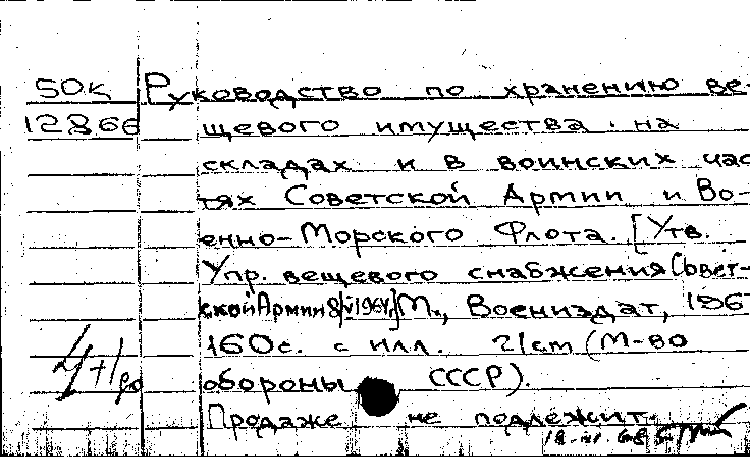 50к Руководство по хранению ве-
12866 щевого имущества на
складах и в воинских час
тях Советской Армии и Во-
енно-Морского Флота. [Утв.
Упр. вещевого снабжения Совет-
ской Армии 8/VI 1964г.] М., Воениздат, 196
160с. с илл. 21cm (М-во
обороны СССР).
Продаже не подлежит.